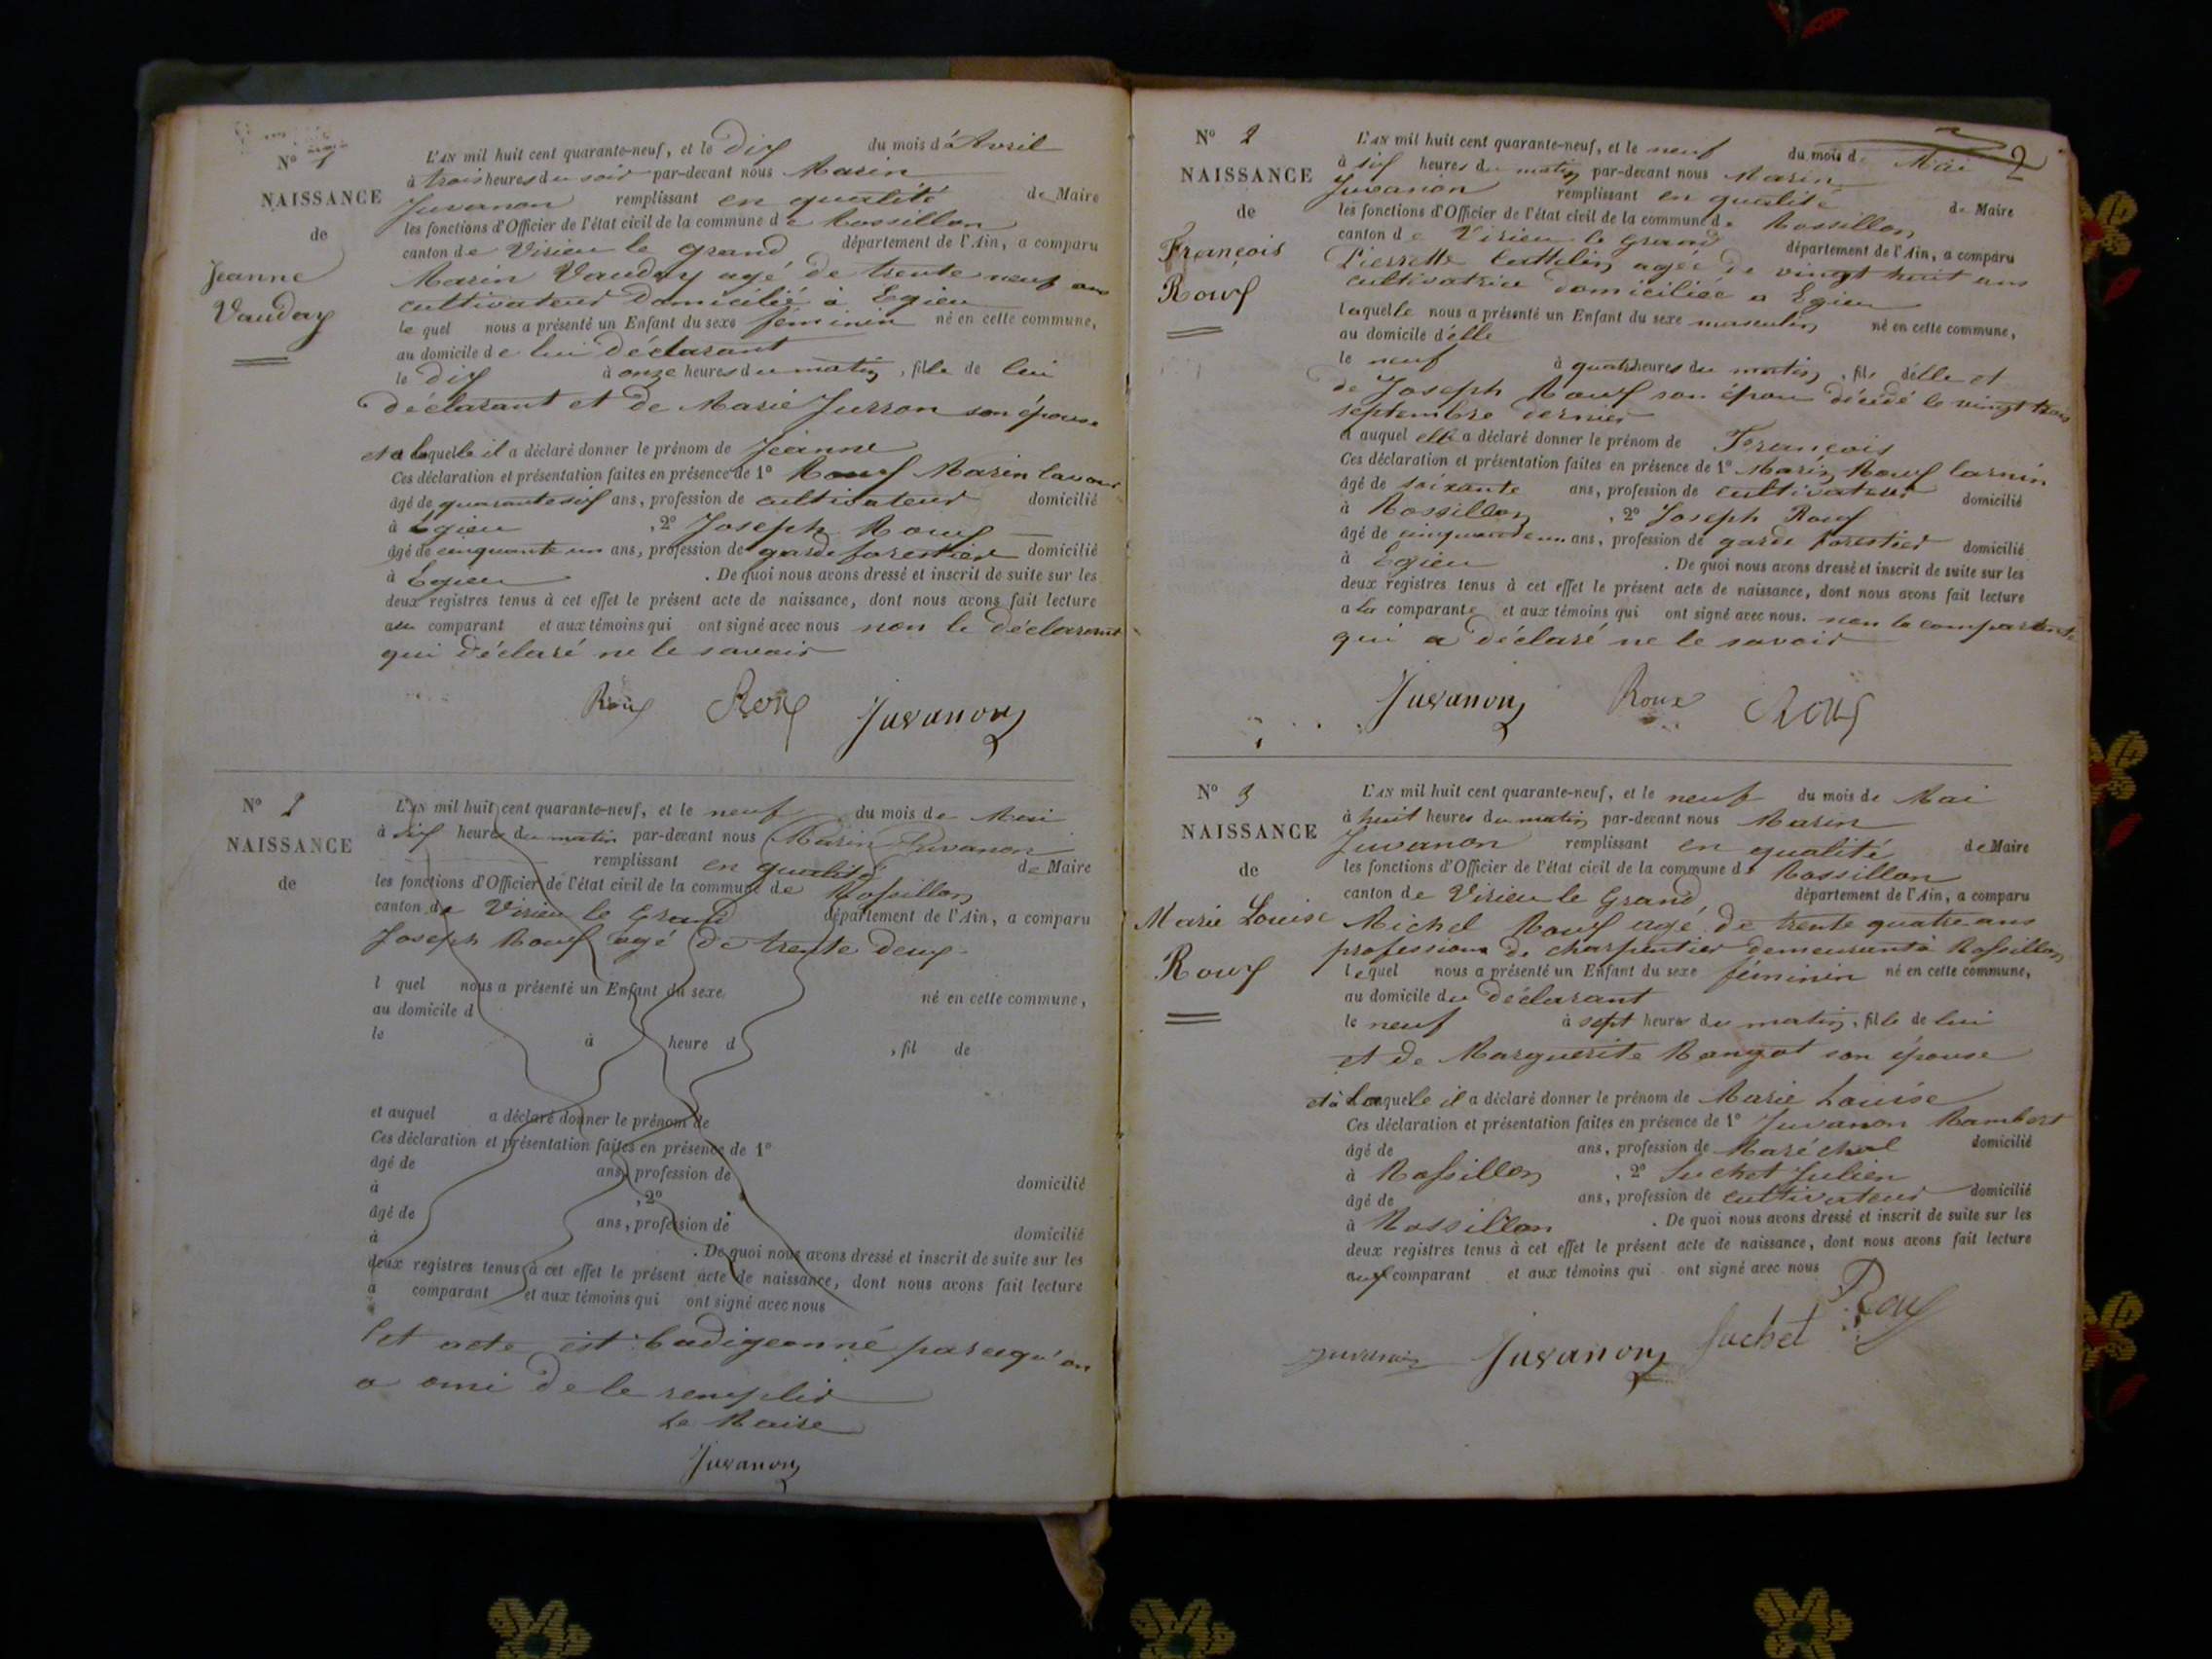 Nº 1
NAISSANCE
de
Jeanne
Vauday
L'AN mil huit cent quarante-neuf, et le dix du mois d'Avril
à trois heures du soir par-devant nous Marin
Juvanon remplissant en qualité de Maire
les fonctions d'Officier de l'état civil de la commune de Rossillon
canton de Virieu le grand département de l'Ain, a comparu
Marin Vauday agé de trente neuf ans
cultivateur domicilié à Egieu
lequel nous a présenté un Enfant du sexe féminin né en cette commune,
au domicile de lui déclarant
le dix à onze heures du matin, fille de lui
déclarant et de Marie Jurron son épouse
et à laquelle il a déclaré donner le prénom de Jeanne
Ces déclaration et présentation faites en présence de 1º Roux Marin
âgé de quarante six ans, profession de cultivateur domicilié
à Egieu, 2º Joseph Roux
âgé de cinquante un ans, profession de garde forestier domicilié
à Egieu. De quoi nous avons dressé et inscrit de suite sur les
deux registres tenus à cet effet le présent acte de naissance, dont nous avons fait lecture
au comparant et aux témoins qui ont signé avec nous non le déclarant
qui déclaré ne le savoir
Roux Roux Juvanon
Nº 2
NAISSANCE
de
L'AN mil huit cent quarante-neuf, et le neuf du mois de Mai
à six heures du matin par-devant nous Marin Juvanon
remplissant en qualité de Maire
les fonctions d'Officier de l'état civil de la commune de Rossillon
canton de Virieu le Grand département de l'Ain, a comparu
Joseph Roux agé de trente deux
l quel nous a présenté un Enfant du sexe né en cette commune,
au domicile d
le à heure d , fil de
et auquel a déclaré donner le prénom de
Ces déclaration et présentation faites en présence de 1º
âgé de ans, profession de domicilié
à , 2º
âgé de ans, profession de domicilié
à . De quoi nous avons dressé et inscrit de suite sur les
deux registres tenus à cet effet le présent acte de naissance, dont nous avons fait lecture
a comparant et aux témoins qui ont signé avec nous
Cet acte est badigeonné parcequ'on
a omi de le remplir
Le Maire
Juvanon
2
Nº 2
NAISSANCE
de
François
Roux
L'AN mil huit cent quarante-neuf, et le neuf du mois de Mai
à six heures du matin par-devant nous Marin
Juvanon remplissant en qualité de Maire
les fonctions d'Officier de l'état civil de la commune de Rossillon
canton de Virieu le Grand département de l'Ain, a comparu
Pierrette Cattelin agée de vingt huit ans
cultivatrice domiciliée a Egieu
laquelle nous a présenté un Enfant du sexe masculin né en cette commune,
au domicile d'elle
le neuf à quatre heures du matin, fils d'elle et
de Joseph Roux son épou décédé le vingt trois
septembre dernier
et auquel elle a déclaré donner le prénom de François
Ces déclaration et présentation faites en présence de 1º Marin Roux
âgé de soixante ans, profession de cultivateur domicilié
à Rossillon, 2º Joseph Roux
âgé de cinquante un ans, profession de garde forestier domicilié
à Egieu. De quoi nous avons dressé et inscrit de suite sur les
deux registres tenus à cet effet le présent acte de naissance, dont nous avons fait lecture
a la comparante et aux témoins qui ont signé avec nous. non la comparante
qui a déclaré ne le savoir
Juvanon Roux Roux
Nº 3
NAISSANCE
de
Marie Louise
Roux
L'AN mil huit cent quarante-neuf, et le neuf du mois de Mai
à huit heures du matin par-devant nous Marin
Juvanon remplissant en qualité de Maire
les fonctions d'Officier de l'état civil de la commune de Rossillon
canton de Virieu le Grand département de l'Ain, a comparu
Michel Roux agé de trente quatre ans
profession de charpentier demeurant à Rossillon
lequel nous a présenté un Enfant du sexe féminin né en cette commune,
au domicile du déclarant
le neuf à sept heures du matin, fille de lui
et de Marguerite son épouse
et à laquelle il a déclaré donner le prénom de Marie Louise
Ces déclaration et présentation faites en présence de 1º Juvanon Rambert
âgé de ans, profession de Maréchal domicilié
à Rossillon, 2º Suchet Julien
âgé de ans, profession de cultivateur domicilié
à Rossillon. De quoi nous avons dressé et inscrit de suite sur les
deux registres tenus à cet effet le présent acte de naissance, dont nous avons fait lecture
aux comparant et aux témoins qui ont signé avec nous
Roux
Juvanon Juvanon Suchet